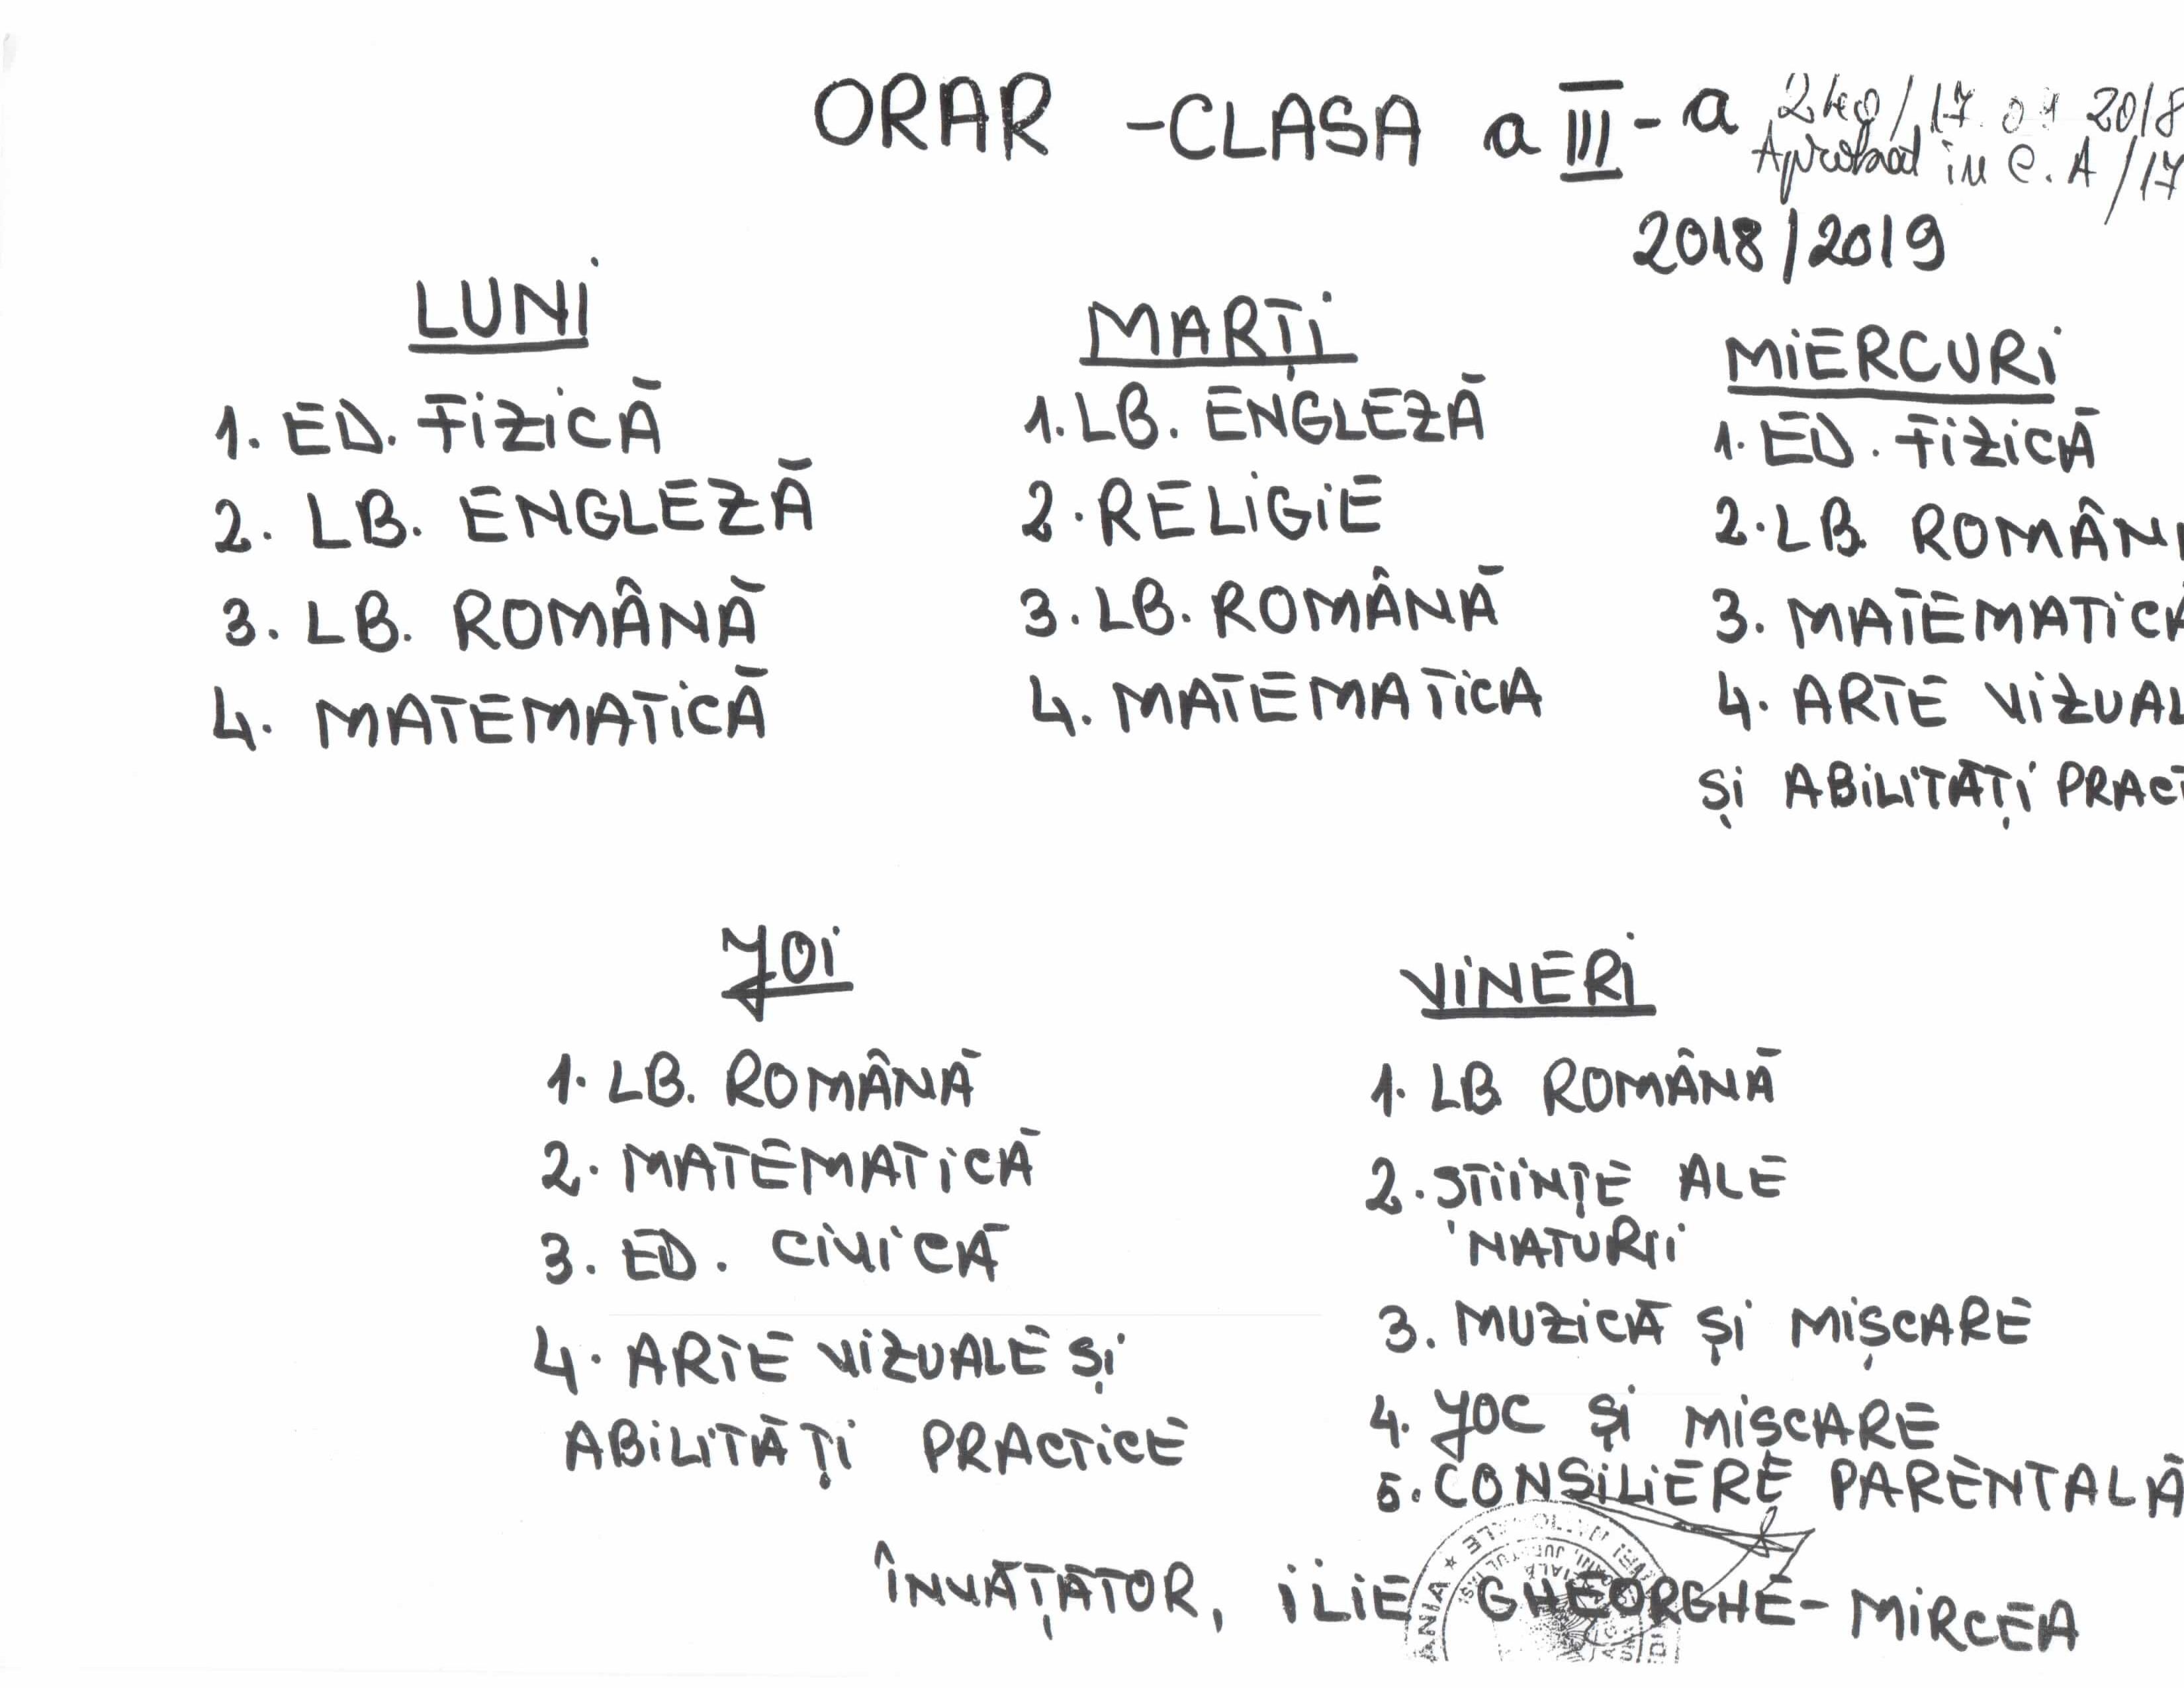 ORAR -CLASA a III-a
2018/2019
Aprobat în C.A/17
2018/2019
LUNI
1. ED. FIZICĂ
2. LB. ENGLEZĂ
3. LB. ROMÂNĂ
4. MATEMATICĂ
MARȚI
1. LB. ENGLEZĂ
2. RELIGIE
3. LB. ROMÂNĂ
4. MATEMATICA
MIERCURI
1. ED. FIZICĂ
2. LB. ROMÂN
3. MATEMATICĂ
4. ARTE VIZUAL
ȘI ABILITĂȚI PRACT
JOI
1. LB. ROMÂNĂ
2. MATEMATICĂ
3. ED. CIVICĂ
4. ARTE VIZUALE ȘI
ABILITĂȚI PRACTICE
VINERI
1. LB ROMÂNĂ
2. ȘTIINȚE ALE
NATURII
3. MUZICĂ ȘI MIȘCARE
4. JOC ȘI MIȘCARE
5. CONSILIERE PARENTALĂ
ÎNVĂȚĂTOR, ILIE GHEORGHE-MIRCEA